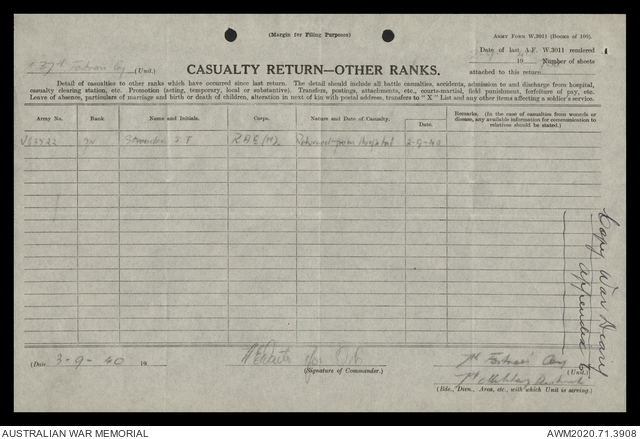 (Margin for Filing Purposes)
ARMY FORM W.3011 (Books of 100).
Date of last A.F. W.3011 rendered
19 Number of sheets
37th Fortress Coy (Unit.)
attached to this return
CASUALTY RETURN—OTHER RANKS.
Detail of casualties to other ranks which have occurred since last return. The detail should include all battle casualties, accidents, admission to and discharge from hospital,
casualty clearing station, etc. Promotion (acting, temporary, local or substantive). Transfers, postings, attachments, etc., courts-martial, field punishment, forfeiture of pay, etc.
Leave of absence, particulars of marriage and birth or death of children, alteration in next of kin with postal address, transfers to "X" List and any other items affecting a soldier's service.
Army No. Rank Name and Initials. Corps. Nature and Date of Casualty. Remarks. (In the case of casualties from wounds or disease, any available information for communication to relatives should be stated.)
Date.
RAE (M) Released from Hospital 2-9-40
Copy War Diary
appendix
(Date 3-9-40 19 )
for O.C.
(Signature of Commander.)
Fortress Coy
(Unit.)
(Bde., Divn., Area, etc., with which Unit is serving.)
AUSTRALIAN WAR MEMORIAL
AWM2020.71.3908